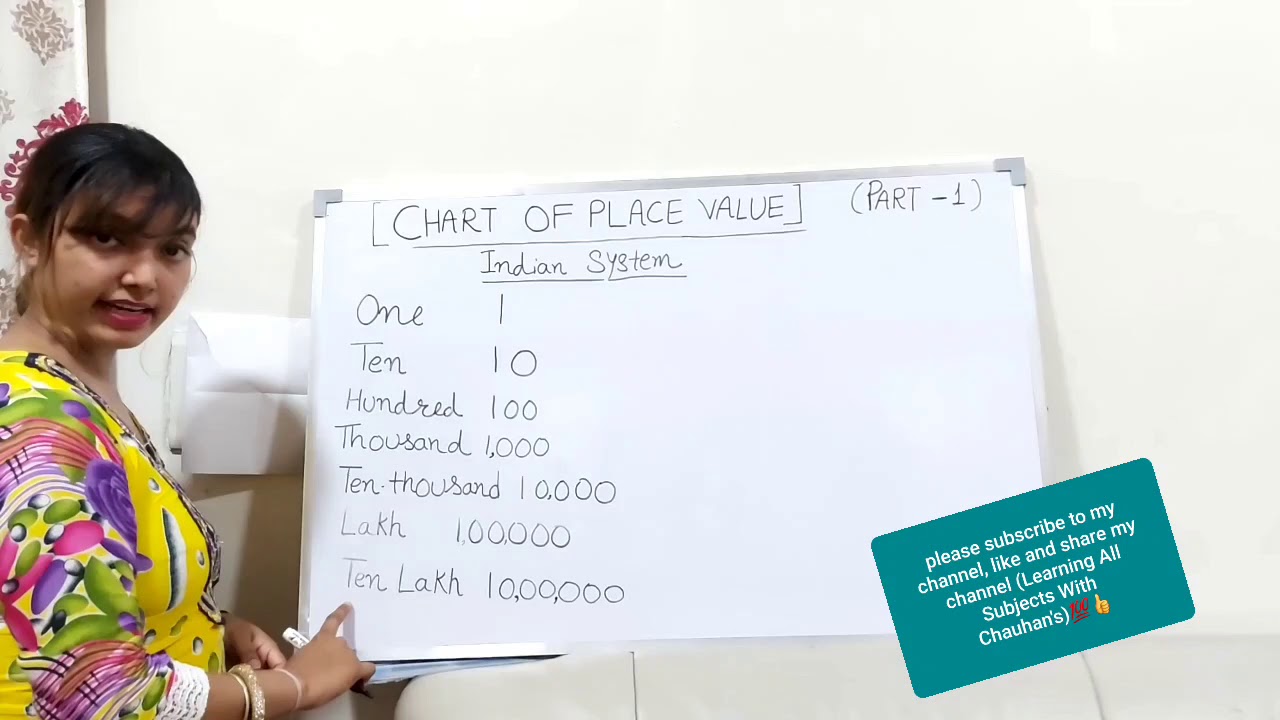 [CHART OF PLACE VALUE] (PART-1)
Indian System
One 1
Ten 10
Hundred 100
Thousand 1,000
Ten-thousand 10,000
Lakh 1,00,000
Ten Lakh 10,00,000
please subscribe to my
channel, like and share my
channel (Learning All
Subjects With
Chauhan's)💯👍